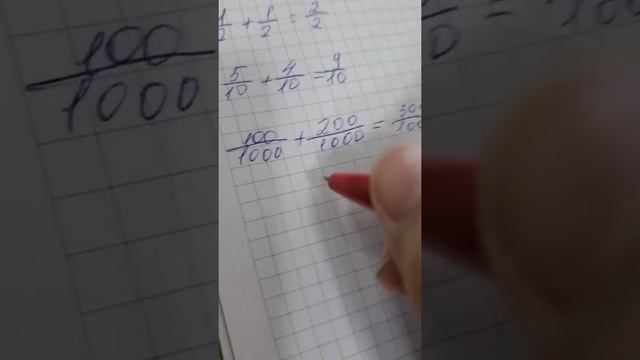 1/2 + 1/2 = 2/2
5/10 + 4/10 = 9/10
100/1000 + 200/1000 =